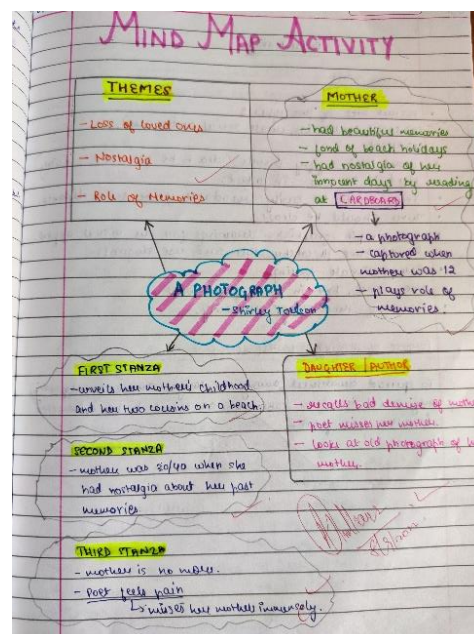 MIND MAP ACTIVITY
THEMES
- Loss of loved ones
- Nostalgia
- Role of Memories
MOTHER
- had beautiful memories
- fond of beach holidays
- had nostalgia of her
innocent days by reading
at CARDBOARD
- a photograph
- captured when
mother was 12
- plays role of
memories.
A PHOTOGRAPH
- Shirley Toulson
FIRST STANZA
- unveils her mother's childhood
and her two cousins on a beach.
SECOND STANZA
- mother was 20/40 when she
had nostalgia about her past
memories
THIRD STANZA
- mother is no more.
- Poet feels pain
misses her mother immensely.
DAUGHTER / AUTHOR
- recalls bad demise of
- poet misses her mother.
- looks at old photograph of
mother.